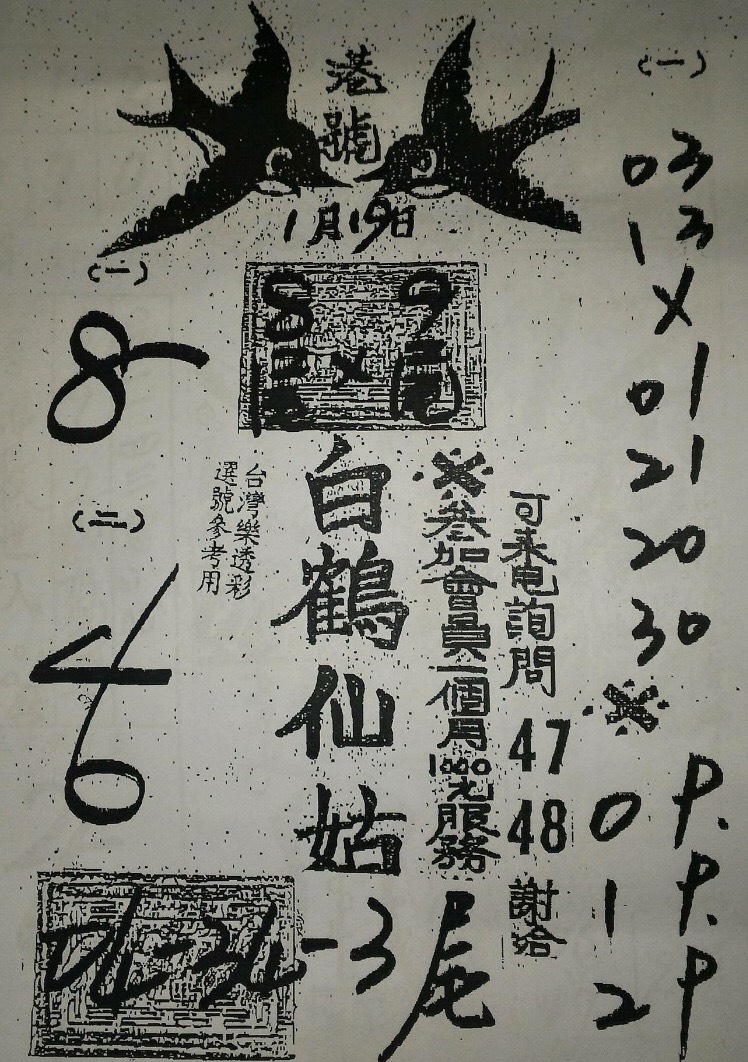 港號
1月19日
(一)
8
(二)
8 9
尾
白鶴仙姑
台灣樂透彩
選號參考用
參加會員一個月1000元服務
可來电詢問
47
48
謝
3尾
(一)
03
13
X
01
21
20
30
0 P.
1 P.
2 P